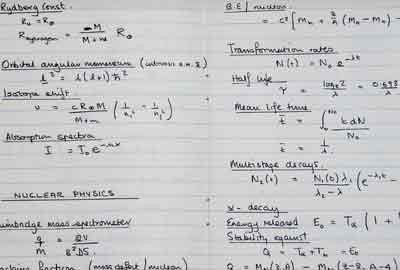 Rydberg Const.
R₀ = R∞
R hydrogen = M / M+m R∞
Orbital angular momentum (intrinsic a.m. s)
l² = l(l+1)ħ²
Isotope shift
υ = cR∞M / M+m (1/n₁² − 1/n₂²)
Absorption spectra
I = I₀e
NUCLEAR PHYSICS
mass spectrometer
q/m = 2V / B²DS
fraction (mass defect / nucleon)
B.E / nucleon
= c² [Mn + Z/A (MH − Mn) −
Transformation rates
N(t) = N₀ e^-λt
Half life
τ = loge2 / λ = 0.693 / λ
Mean life time
t̄ = ∫₀^N₀ t dN / N₀
t̄ = 1/λ
Multistage decays.
N₂(t) = N₁(0) λ₁ / λ₂ − λ₁ (e^-λ₁t −
α- decay
Energy released E₀ = Tα (1 +
Stability against
Q = Tα + Tb = E₀